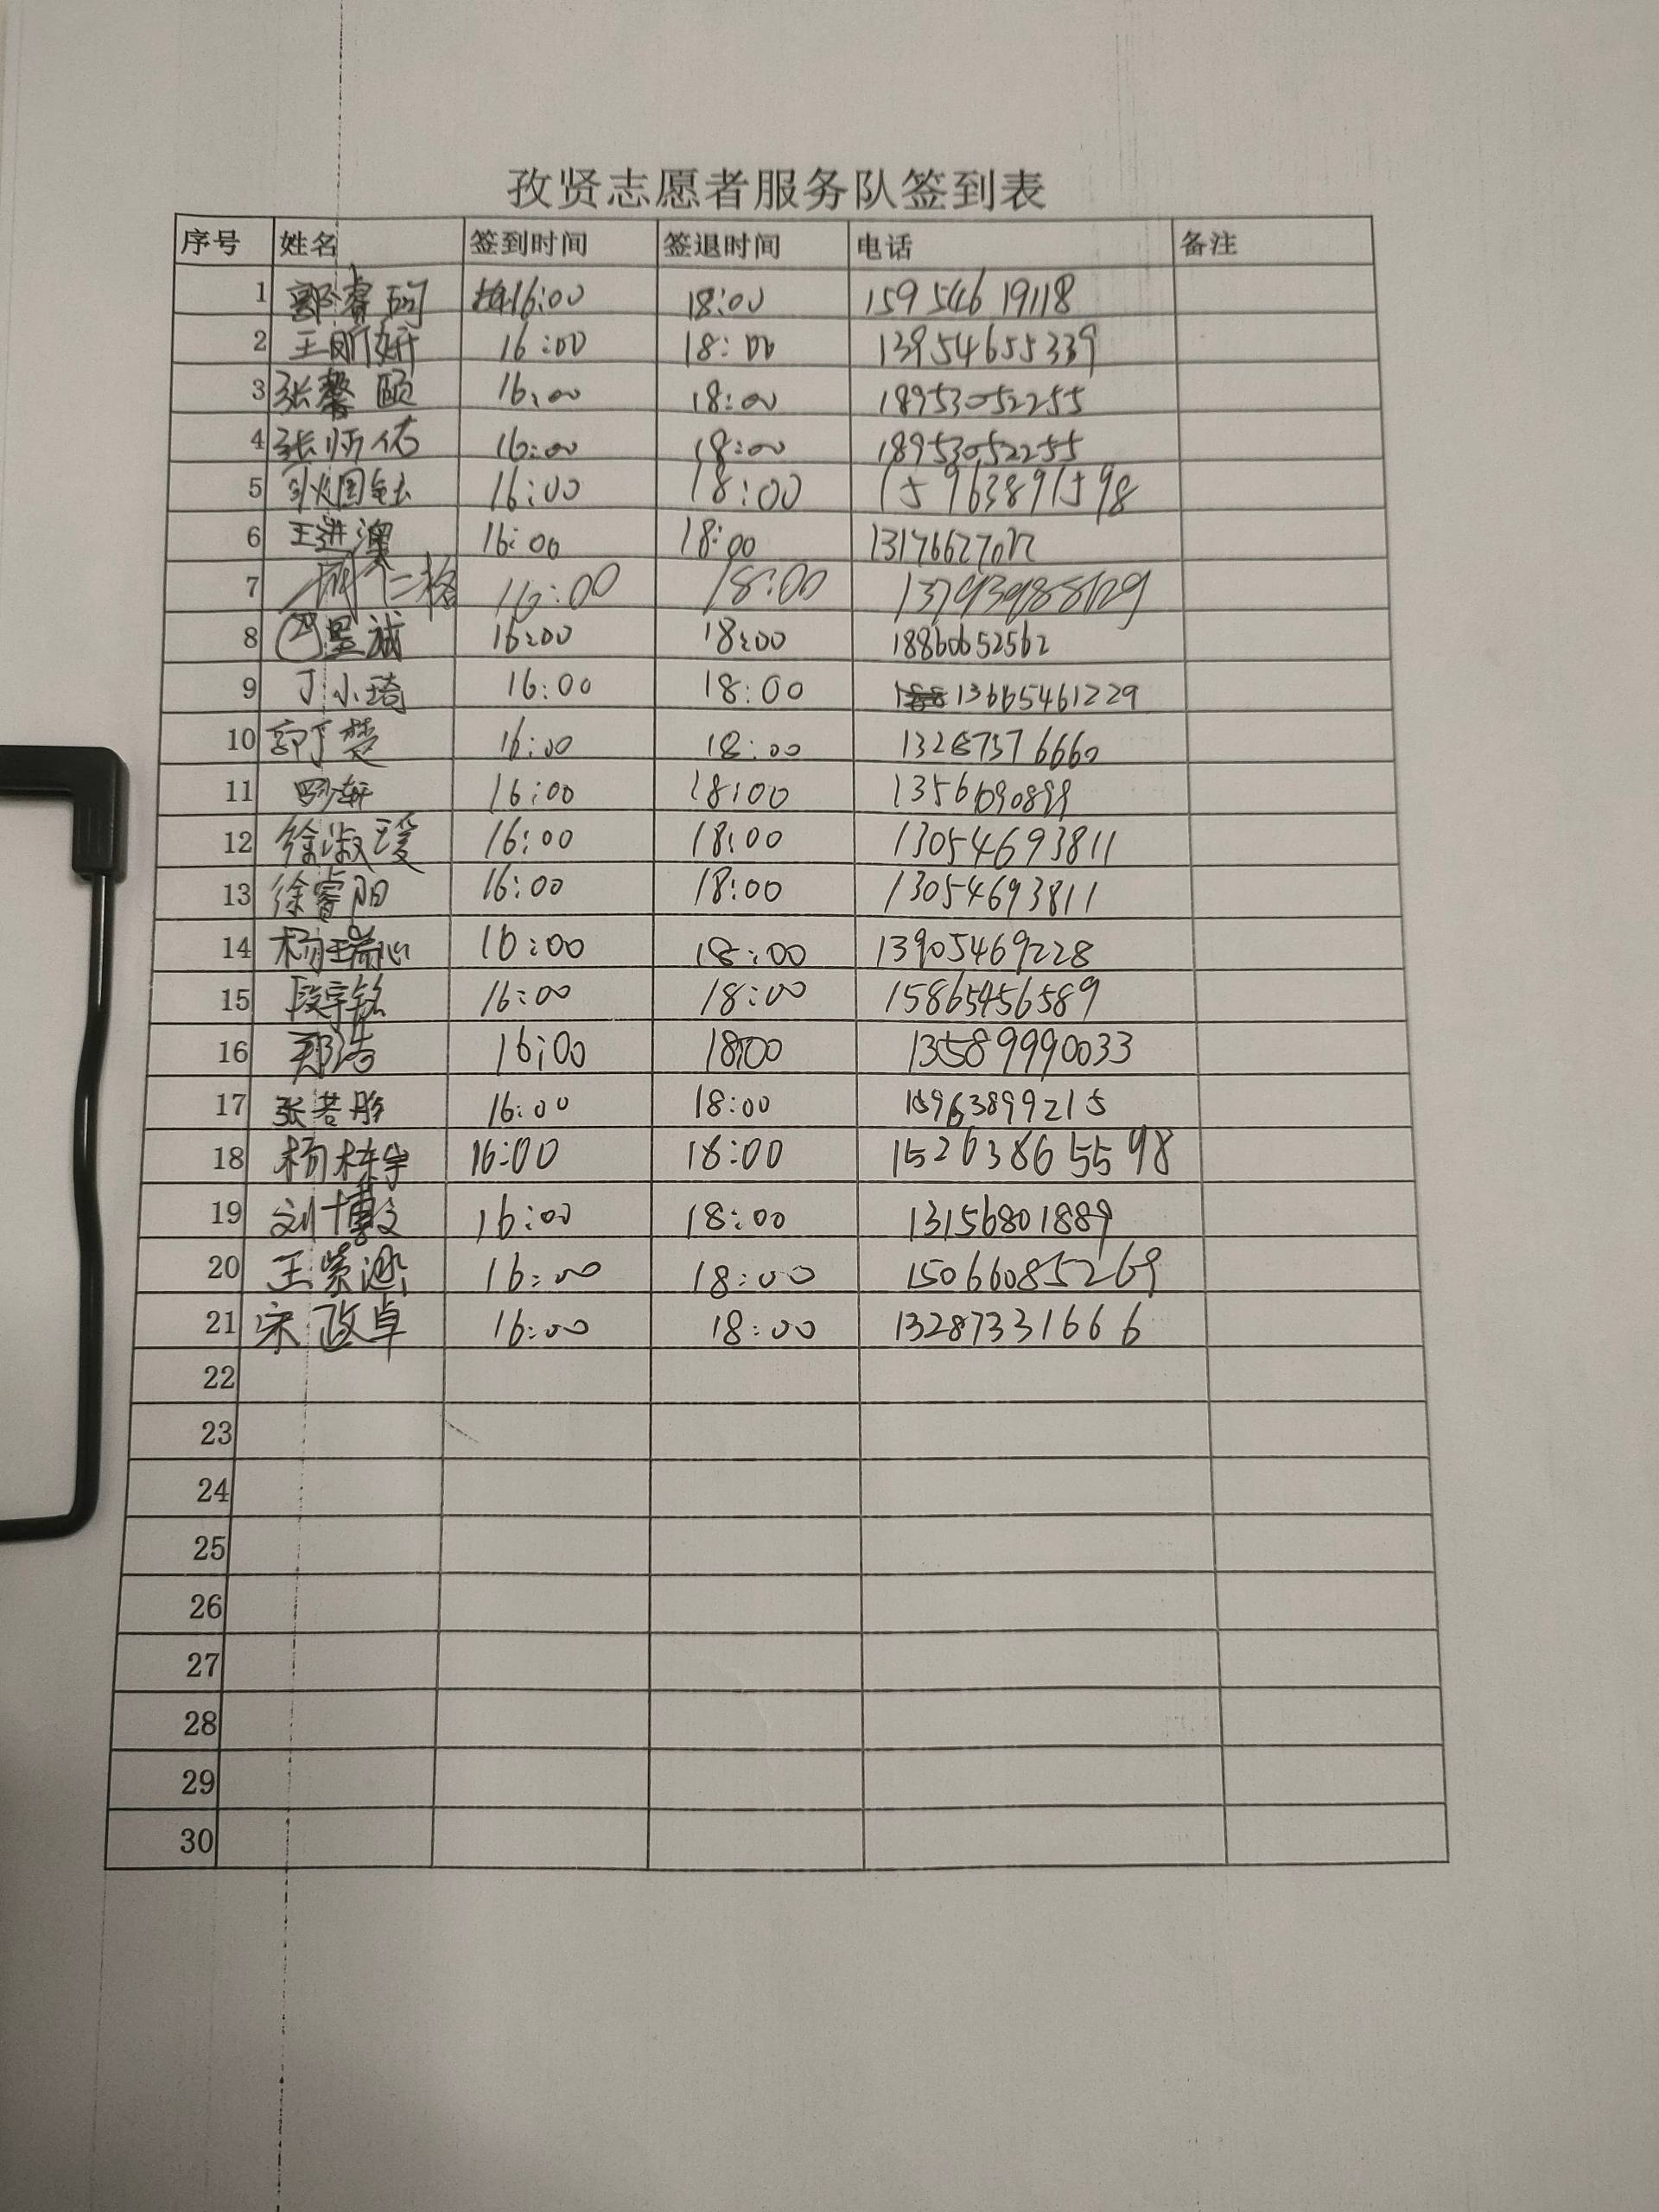 孜贤志愿者服务队签到表
序号 姓名 签到时间 签退时间 电话 备注
1 郭睿珂 16:00 18:00 15954619118
2 王昕妍 16:00 18:00 13954655339
3 张馨颐 16:00 18:00 18953052255
4 张师佑 16:00 18:00 18953052255
5 16:00 18:00 15963891598
6 王进澳 16:00 18:00
7 16:00 18:00
8 星诚 16:00 18:00 18860652562
9 丁小琦 16:00 18:00 13665461229
10 郭丁楚 16:00 18:00
11 16:00 18:00
12 徐淑瑗 16:00 18:00 13054693811
13 徐睿阳 16:00 18:00 13054693811
14 杨瑞心 16:00 18:00 13905469228
15 段宇铭 16:00 18:00 15865456589
16 郑浩 16:00 18:00 13589990033
17 张若彤 16:00 18:00 15963899215
18 杨栋宇 16:00 18:00 15263865598
19 刘博文 16:00 18:00 13156801889
20 王紫涵 16:00 18:00 15066085269
21 宋政卓 16:00 18:00 13287331666
22
23
24
25
26
27
28
29
30